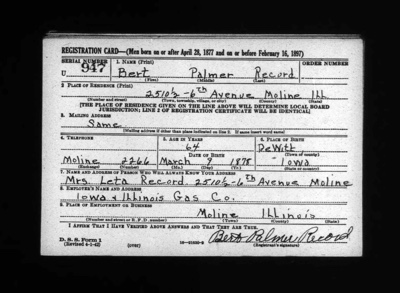 REGISTRATION CARD—(Men born on or after April 28, 1877 and on or before February 16, 1897)
SERIAL NUMBER 1. NAME (Print) ORDER NUMBER
U 947 Bert Palmer Record
(First) (Middle) (Last)
2. PLACE OF RESIDENCE (Print)
2510½-6th Avenue Moline Ill
(Number and street) (Town, township, village, or city) (County) (State)
[THE PLACE OF RESIDENCE GIVEN ON THE LINE ABOVE WILL DETERMINE LOCAL BOARD
JURISDICTION; LINE 2 OF REGISTRATION CERTIFICATE WILL BE IDENTICAL]
3. MAILING ADDRESS
Same
[Mailing address if other than place indicated on line 2. If same insert word same]
4. TELEPHONE 5. AGE IN YEARS 6. PLACE OF BIRTH
64 DeWitt
DATE OF BIRTH (Town or county)
Moline 2266 March 9 1878 Iowa
(Exchange) (Number) (Mo.) (Day) (Yr.) (State or country)
7. NAME AND ADDRESS OF PERSON WHO WILL ALWAYS KNOW YOUR ADDRESS
Mrs. Leta Record. 2510½-6th Avenue Moline
8. EMPLOYER'S NAME AND ADDRESS
Iowa & Illinois Gas Co.
9. PLACE OF EMPLOYMENT OR BUSINESS
Moline Illinois
(Number and street or R. F. D. number) (Town) (County) (State)
I AFFIRM THAT I HAVE VERIFIED ABOVE ANSWERS AND THAT THEY ARE TRUE.
D. S. S. Form 1
(Revised 4-1-42) (over) Bert Palmer Record
(Registrant's signature)